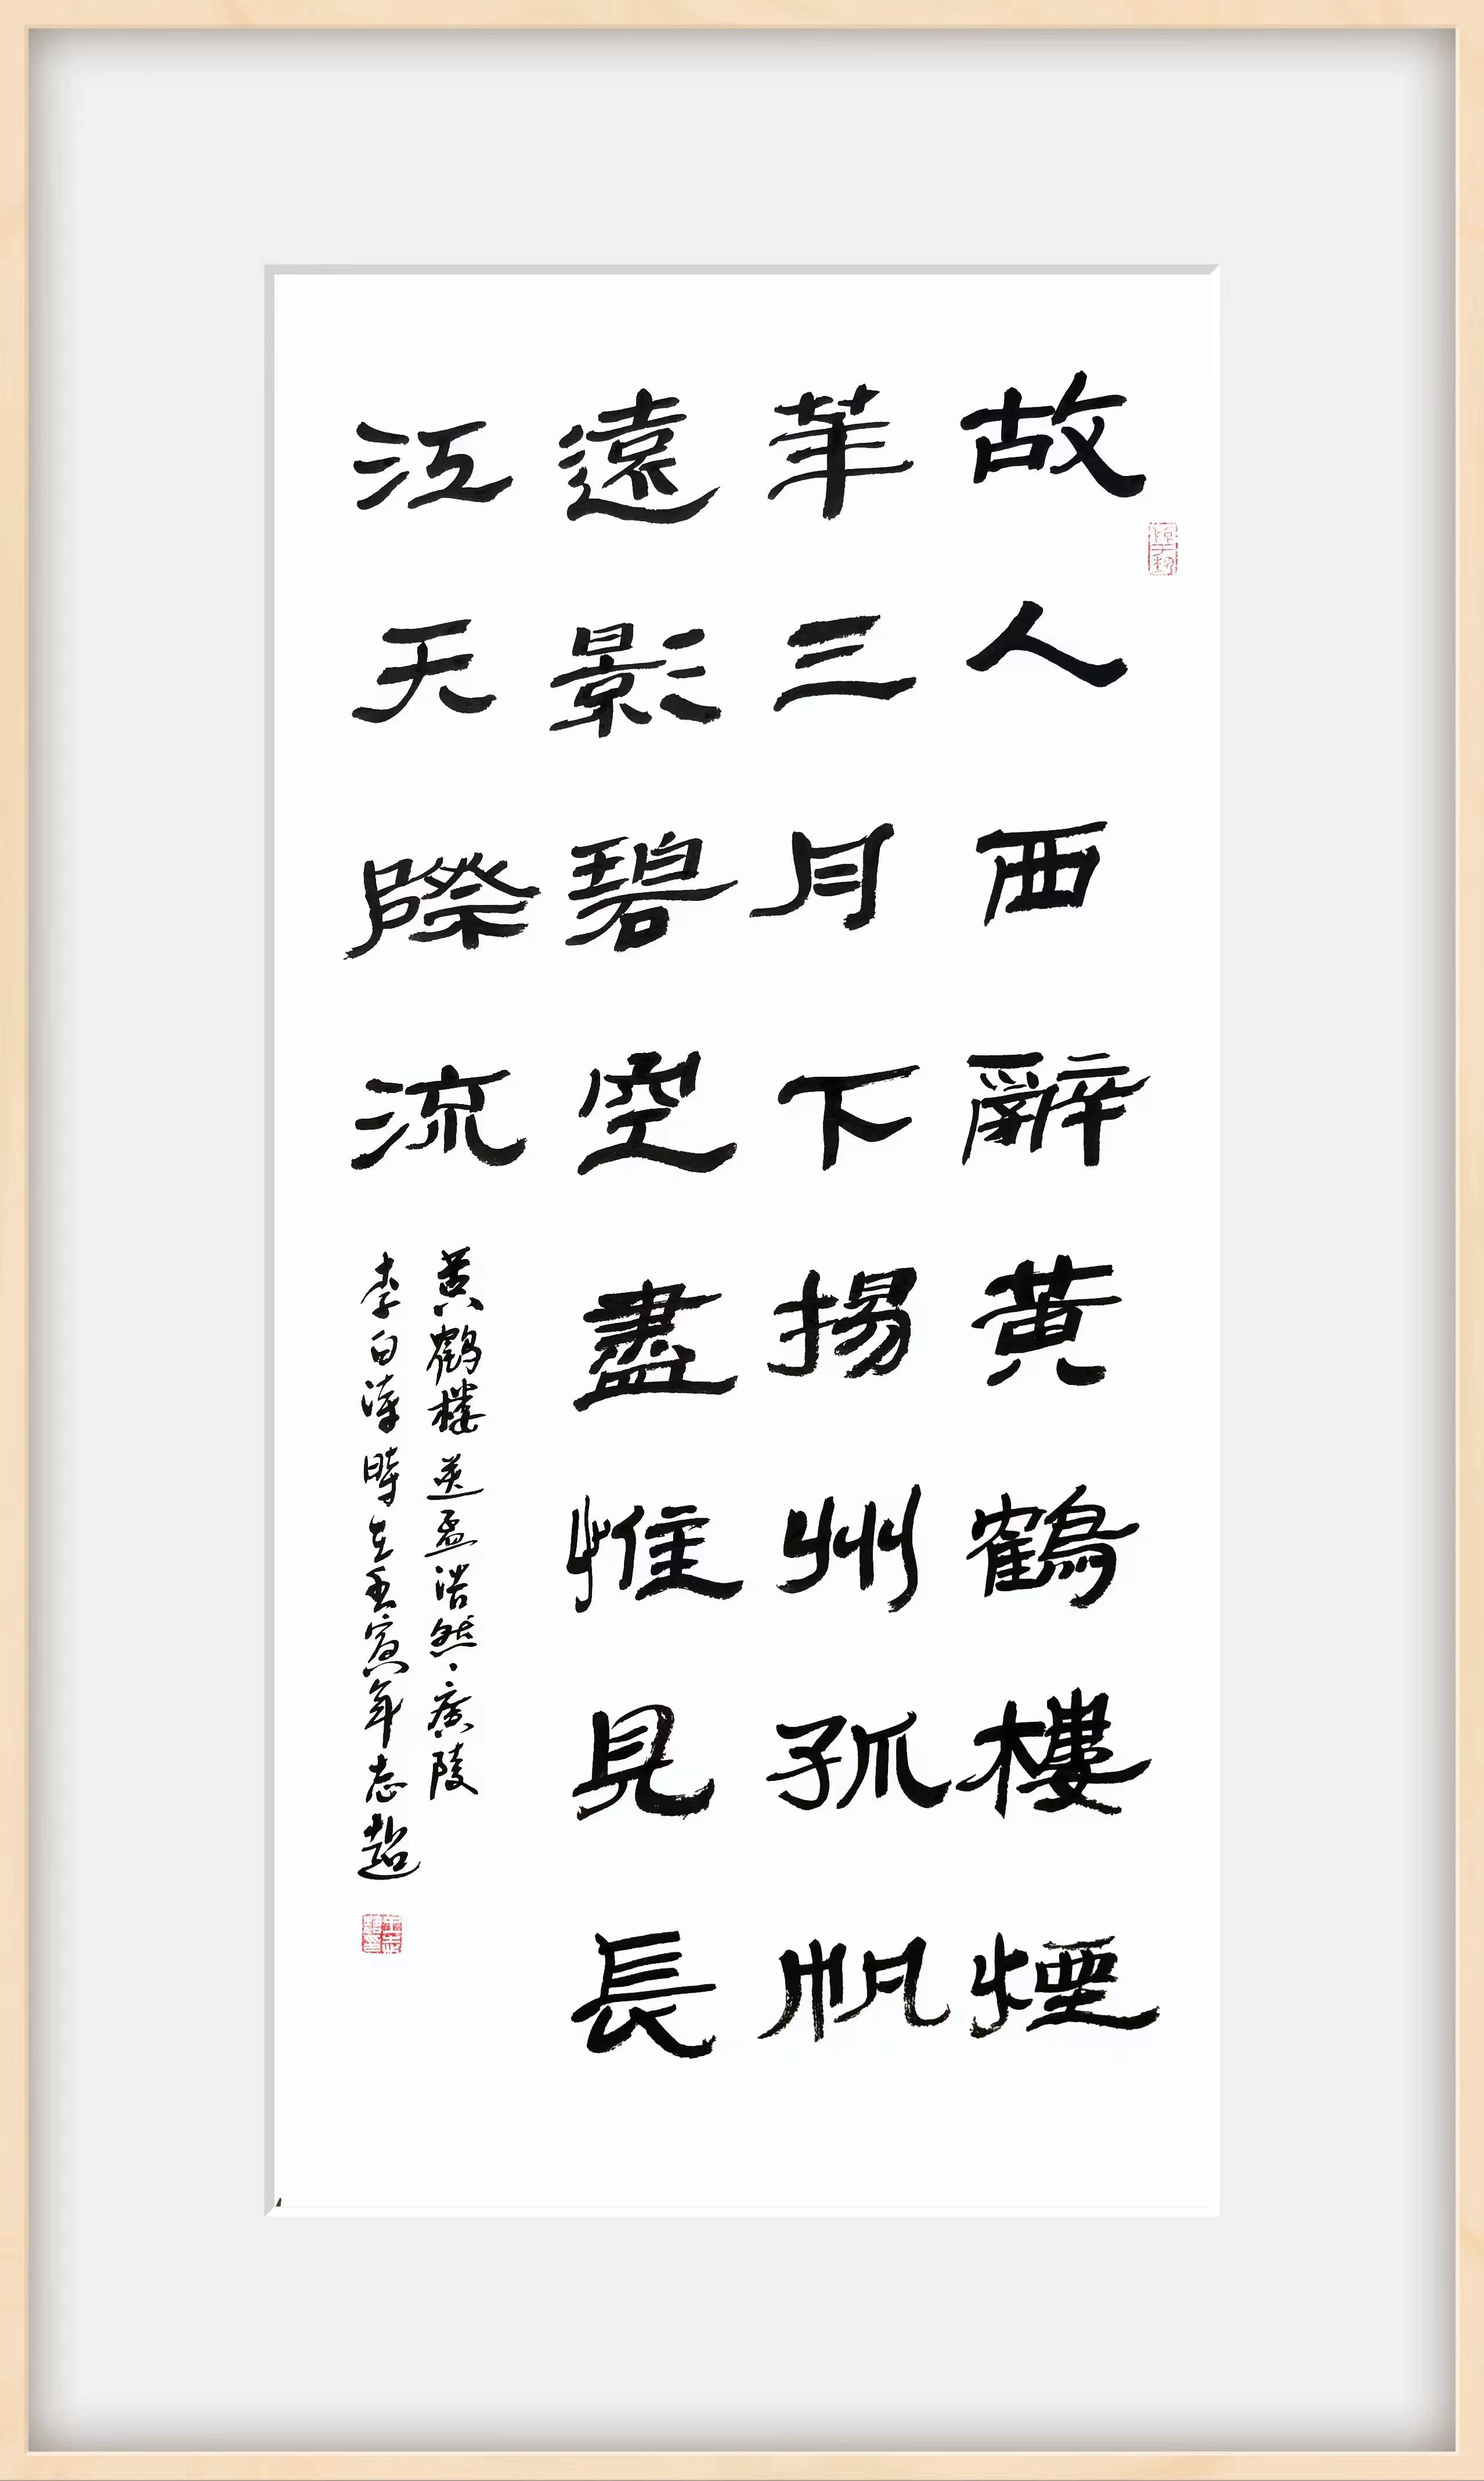 故人西辭黄鶴樓煙
華三月下揚州孤帆
遠影碧空盡惟見長
江天際流
黄鶴樓送孟浩然之廣陵
李白詩時在壬寅年志超